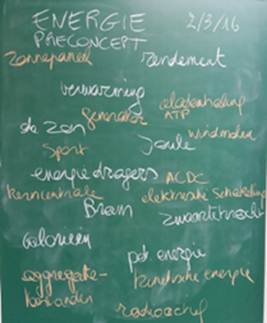 ENERGIE 2/3/16
PRECONCEPT
zonnepaneel rendement
verwarming
generator ademhaling
ATP
de zon windmolen
Sport Joule
energiedragers ACDC
kerncentrale elektrische schakeling
Brein zwaartekracht
Calorieën
pot energie
aggregatie- kinetische energie
toestanden
radioactief